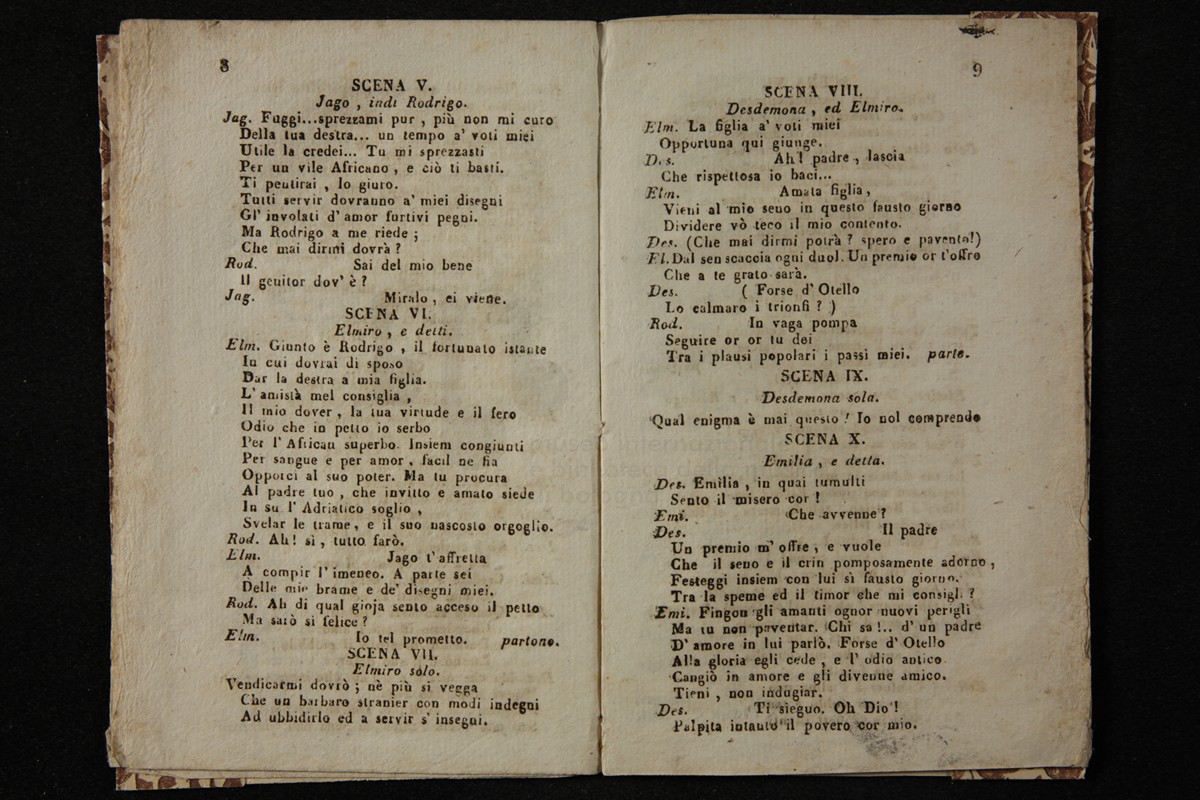 8
SCENA V.
Jago, indi Rodrigo.
Jag. Fuggi...sprezzami pur, più non mi curo
Della tua destra... un tempo a' voti miei
Utile la credei... Tu mi sprezzasti
Per un vile Africano, e ciò ti basti.
Ti pentirai, lo giuro.
Tutti servir dovranno a' miei disegni
Gl' involati d' amor furtivi pegni.
Ma Rodrigo a me riede;
Che mai dirmi dovrà?
Rod. Sai del mio bene
Il genitor dov' è?
Jag. Miralo, ei viene.
SCENA VI.
Elmiro, e detti.
Elm. Giunto è Rodrigo, il fortunato istante
In cui dovrai di sposo
Dar la destra a mia figlia.
L' amistà mel consiglia,
Il mio dover, la tua virtude e il fero
Odio che in petto io serbo
Per l' African superbo. Insiem congiunti
Per sangue e per amor, facil ne fia
Opporci al suo poter. Ma tu procura
Al padre tuo, che invitto e amato siede
In su l' Adriatico soglio,
Svelar le trame, e il suo nascosto orgoglio.
Rod. Ah! sì, tutto farò.
Elm. Jago t'affretta
A compir l' imeneo. A parte sei
Delle mie brame e de' disegni miei.
Rod. Ah di qual gioja sento acceso il petto
Ma sarò sì felice?
Elm. Io tel prometto. partono.
SCENA VII.
Elmiro sólo.
Vendicarmi dovrò; nè più si vegga
Che un barbaro stranier con modi indegni
Ad ubbidirlo ed a servir s' insegni.
9
SCENA VIII.
Desdemona, ed Elmiro.
Elm. La figlia a' voti miei
Opportuna qui giunge.
Des. Ah! padre, lascia
Che rispettosa io baci...
Elm. Amata figlia,
Vieni al mio seno in questo fausto giorno
Dividere vò teco il mio contento.
Des. (Che mai dirmi potrà? spero e pavento!)
El. Dal sen scaccia ogni duol. Un premio or t'offro
Che a te grato sarà.
Des. (Forse d' Otello
Lo calmaro i trionfi?)
Rod. In vaga pompa
Seguire or or tu dei
Tra i plausi popolari i passi miei. parte.
SCENA IX.
Desdemona sola.
Qual enigma è mai questo! Io nol comprendo
SCENA X.
Emilia, e detta.
Des. Emilia, in quai tumulti
Sento il misero cor!
Emi. Che avvenne?
Des. Il padre
Un premio m' offre, e vuole
Che il seno e il crin pomposamente adorno,
Festeggi insiem con lui sì fausto giorno.
Tra la speme ed il timor che mi consigli?
Emi. Fingon gli amanti ognor nuovi perigli
Ma tu non paventar. Chi sa!.. d' un padre
D' amore in lui parlò. Forse d' Otello
Alla gloria egli cede, e l' odio antico
Cangiò in amore e gli divenne amico.
Tieni, non indugiar.
Des. Ti sieguo. Oh Dio!
Palpita intanto il povero cor mio.